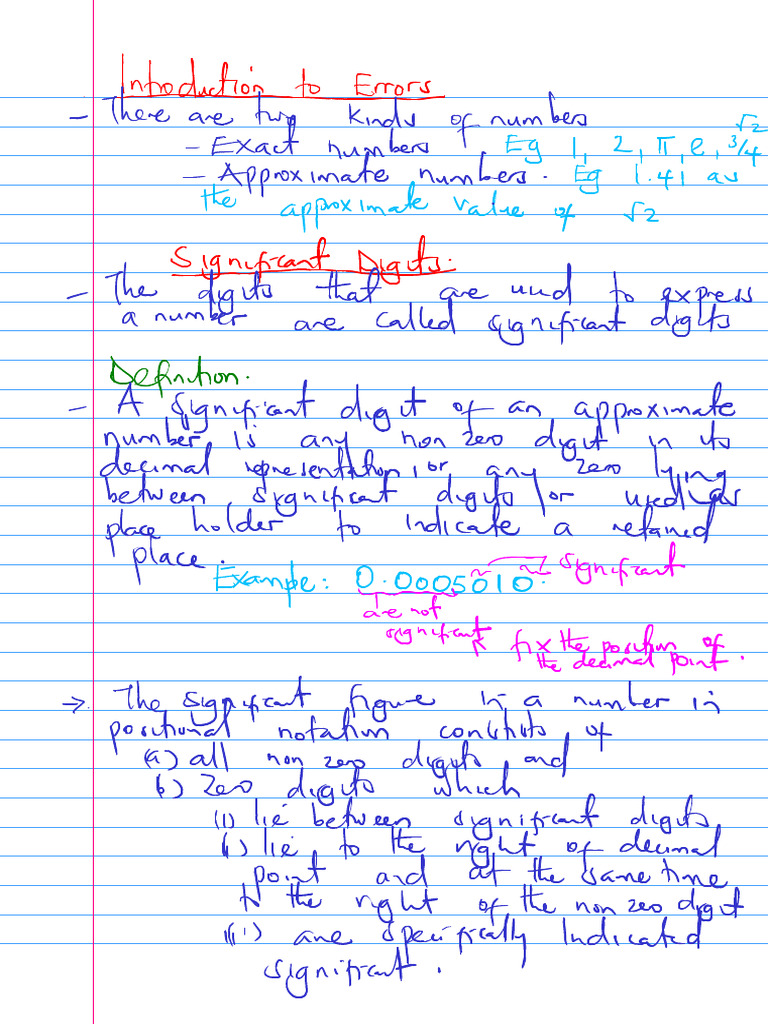 Introduction to Errors
- There are two kinds of numbers
- Exact numbers. Eg 1, 2, π, e, 3/4 √2
- Approximate numbers. Eg 1.41 as
the approximate value of √2
Significant Digits.
- The digits that are used to express
a number are called significant digits
Definition.
- A significant digit of an approximate
number is any non zero digit in its
decimal representation, or any zero lying
between significant digits or used as
place holder to indicate a retained
place.
Example: 0.0005010. significant
are not
significant
fix the position of
the decimal point.
→. The significant figure in a number in
positional notation consists of
(a) all non zero digits and
(b) zero digits which
(i) lie between significant digits
(ii) lie to the right of decimal
point and at the same time
to the right of the non zero digit
(iii) are specifically indicated
significant.